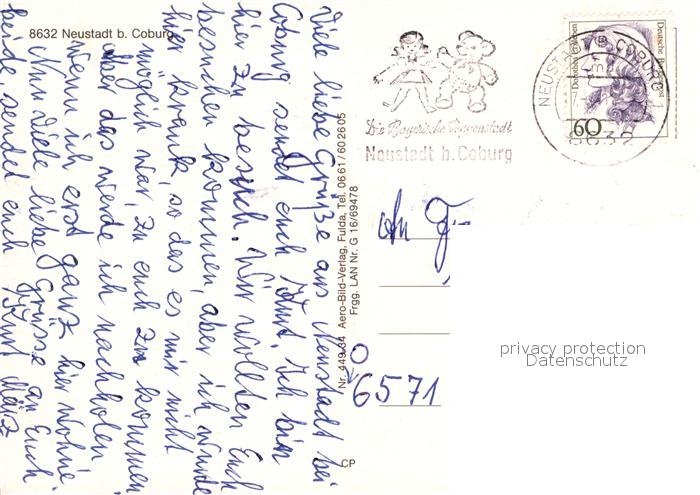 8632 Neustadt b. Coburg
Viele liebe Grüße aus Neustadt bei
Coburg sendet euch Kurt. Ich bin
hier zu besuch. Wir wollten Euch
besuchen kommen, aber ich wurde
hier krank, so das es mir nicht
möglich war, zu euch zu kommen
aber das werde ich nachholen
wenn ich erst ganz hier wohne.
Nun viele liebe Grüsse an Euch
beide, sendet euch Kurt
Nr. 449-34 Aero-Bild-Verlag, Fulda, Tel. 06 61/60 26 05
Frgg. LAN Nr. G 16/69478
CP
Die Bayerische Puppenstadt
Neustadt b. Coburg
NEUSTADT B COBURG
8632
Deutsche Bundespost
60
An
6571
privacy protection
Datenschutz